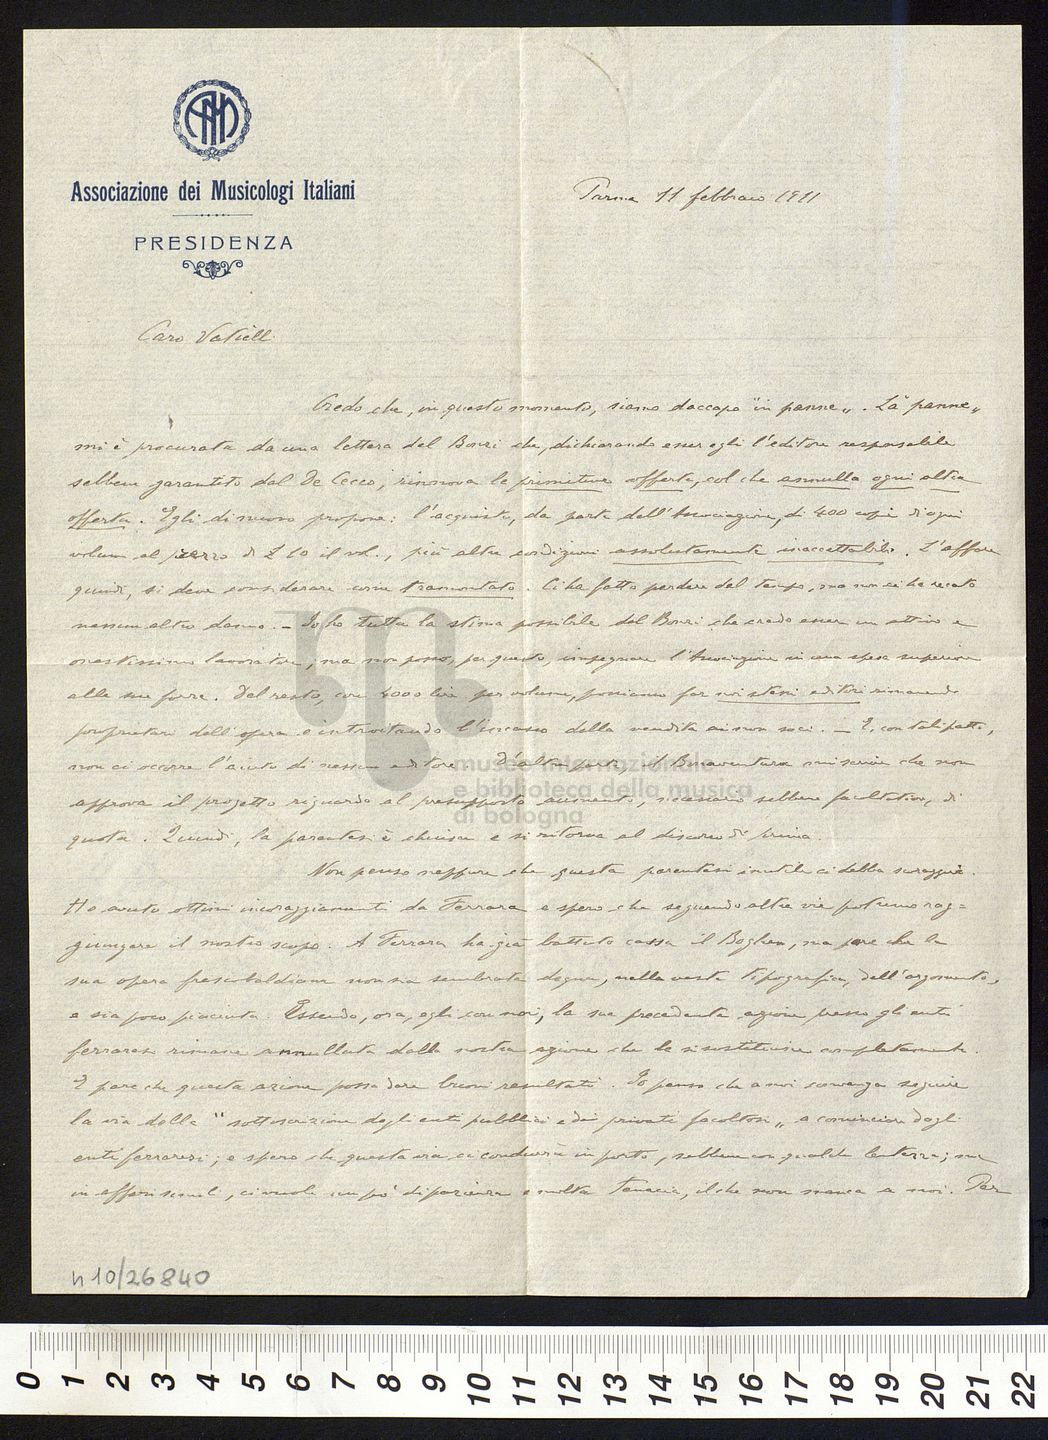 AMI
Associazione dei Musicologi Italiani
PRESIDENZA
Parma 11 febbraio 1911
Caro Vatielli
Credo che, in questo momento, siamo daccapo "in panne". La "panne"
mi è procurata da una lettera del Bonzi che, dichiarando esser egli l'editore responsabile
sebbene garantito dal De Cecco, rinnova le primitive offerte, col che annulla ogni altra
offerta. Egli di nuovo propone: l'acquisto, da parte dell'Associazione, di 400 copie di ogni
volume al prezzo di L 10 il vol., più altre condizioni assolutamente inaccettabili. L'affare
quindi, si deve considerare come tramontato. Ci ha fatto perdere del tempo, ma non ci ha recato
nessun altro danno. – Io ho tutta la stima possibile del Bonzi che credo esser un attivo e
onestissimo lavoratore, ma non posso, per questo, impegnare l'Associazione in una spesa superiore
alle sue forze. Del resto, con 4000 lire per volume, possiamo far noi stessi editori rimanendo
proprietari dell'opera e introitando l'incasso della vendita ai non soci. – E, con tali patti,
non ci occorre l'aiuto di nessun editore. D'altra parte, il Bonaventura mi scrive che non
approva il progetto riguardo al presupposto aumento, necessario sebbene facoltativo, di
quota. Quindi, la parentesi è chiusa e si ritorna al discorso di prima.
Non penso neppure che questa parentesi inutile ci debba scoraggiare.
Ho avuto ottimi incoraggiamenti da Ferrara e spero che seguendo altre vie potremo rag=
giungere il nostro scopo. A Ferrara ha già battuto cassa il Boghen, ma pare che la
sua opera frescobaldiana non sia sembrata degna, nella veste tipografica, dell'argomento,
e sia poco piaciuta. Essendo, ora, egli con noi, la sua precedente azione presso gli enti
ferraresi rimane annullata dalla nostra azione che la sostituisce completamente.
E pare che questa azione possa dare buoni resultati. Io penso che a noi convenga seguire
la via della "sottoscrizione degli enti pubblici e dei privati facoltosi" a cominciare dagli
enti ferraresi; e spero che questa via ci condurrà in porto, sebbene con qualche lentezza; ma
in affari simili, ci vuole un po' di pazienza e molta tenacia, il che non manca a noi. Per
museo internazionale
e biblioteca della musica
di bologna
n 10/26840
0 1 2 3 4 5 6 7 8 9 10 11 12 13 14 15 16 17 18 19 20 21 22